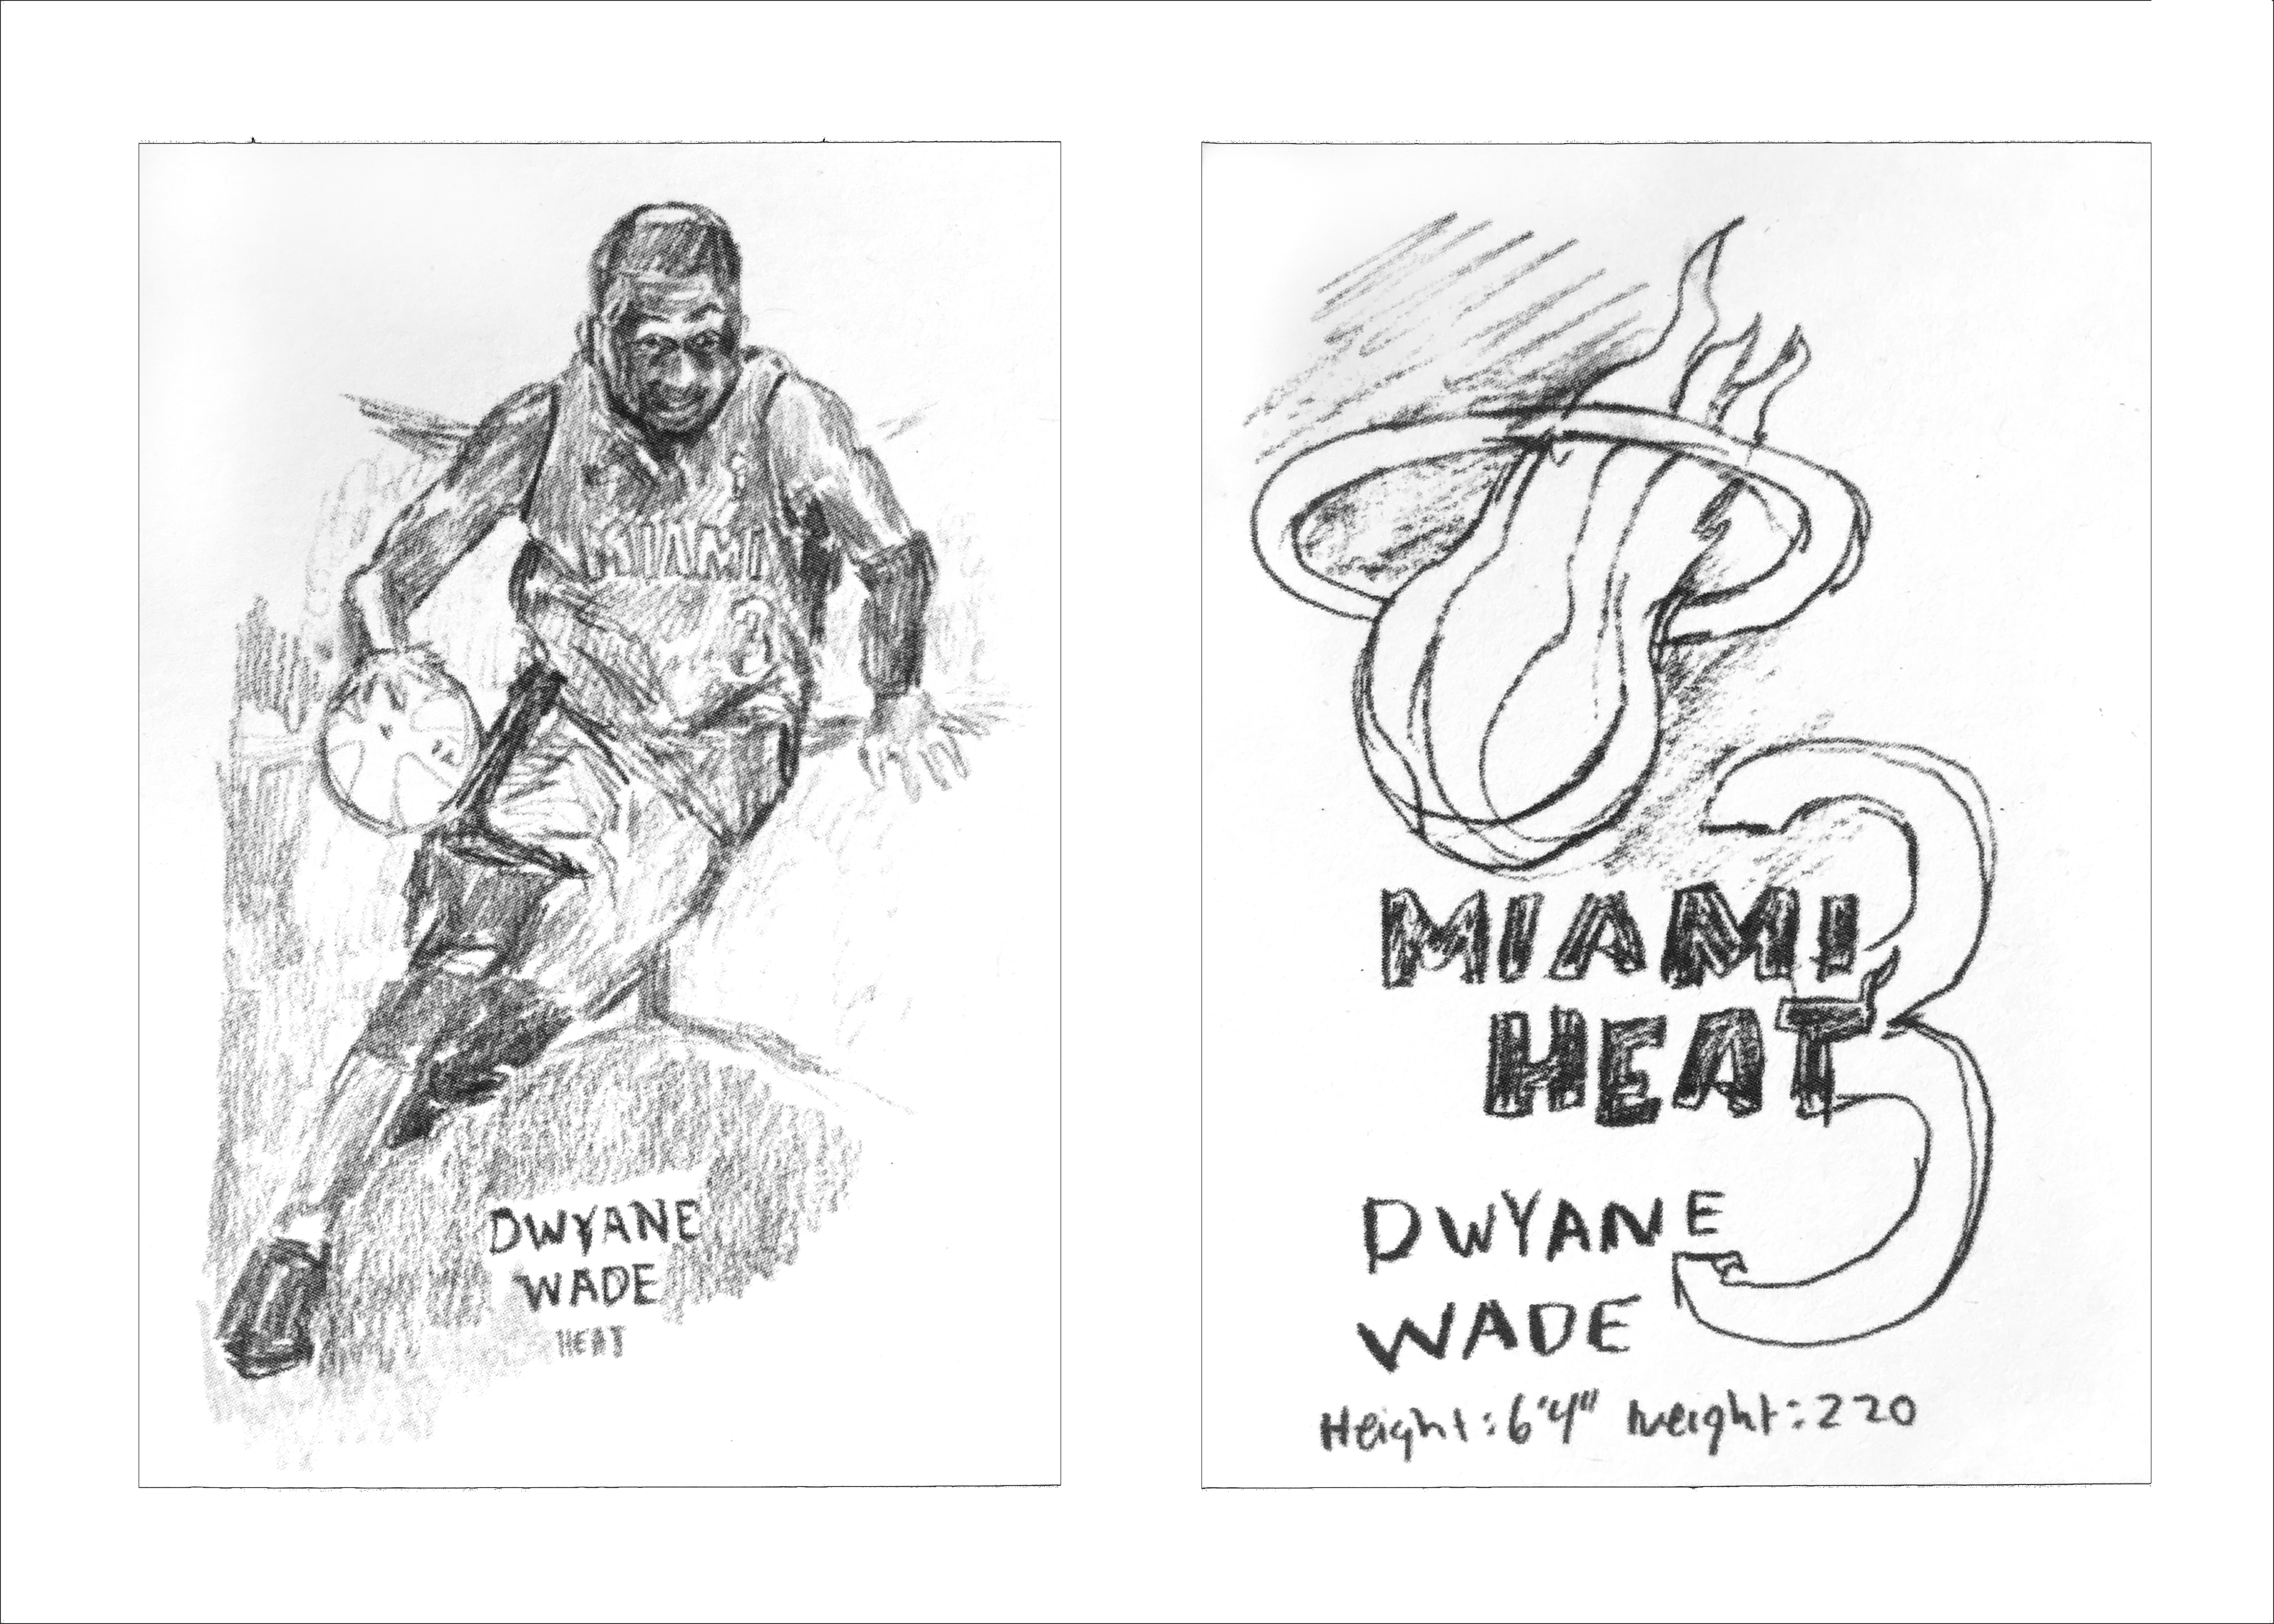 MIAMI
3
DWYANE
WADE
HEAT
MIAMI
HEAT
3
DWYANE
WADE
Height: 6'4" weight: 220